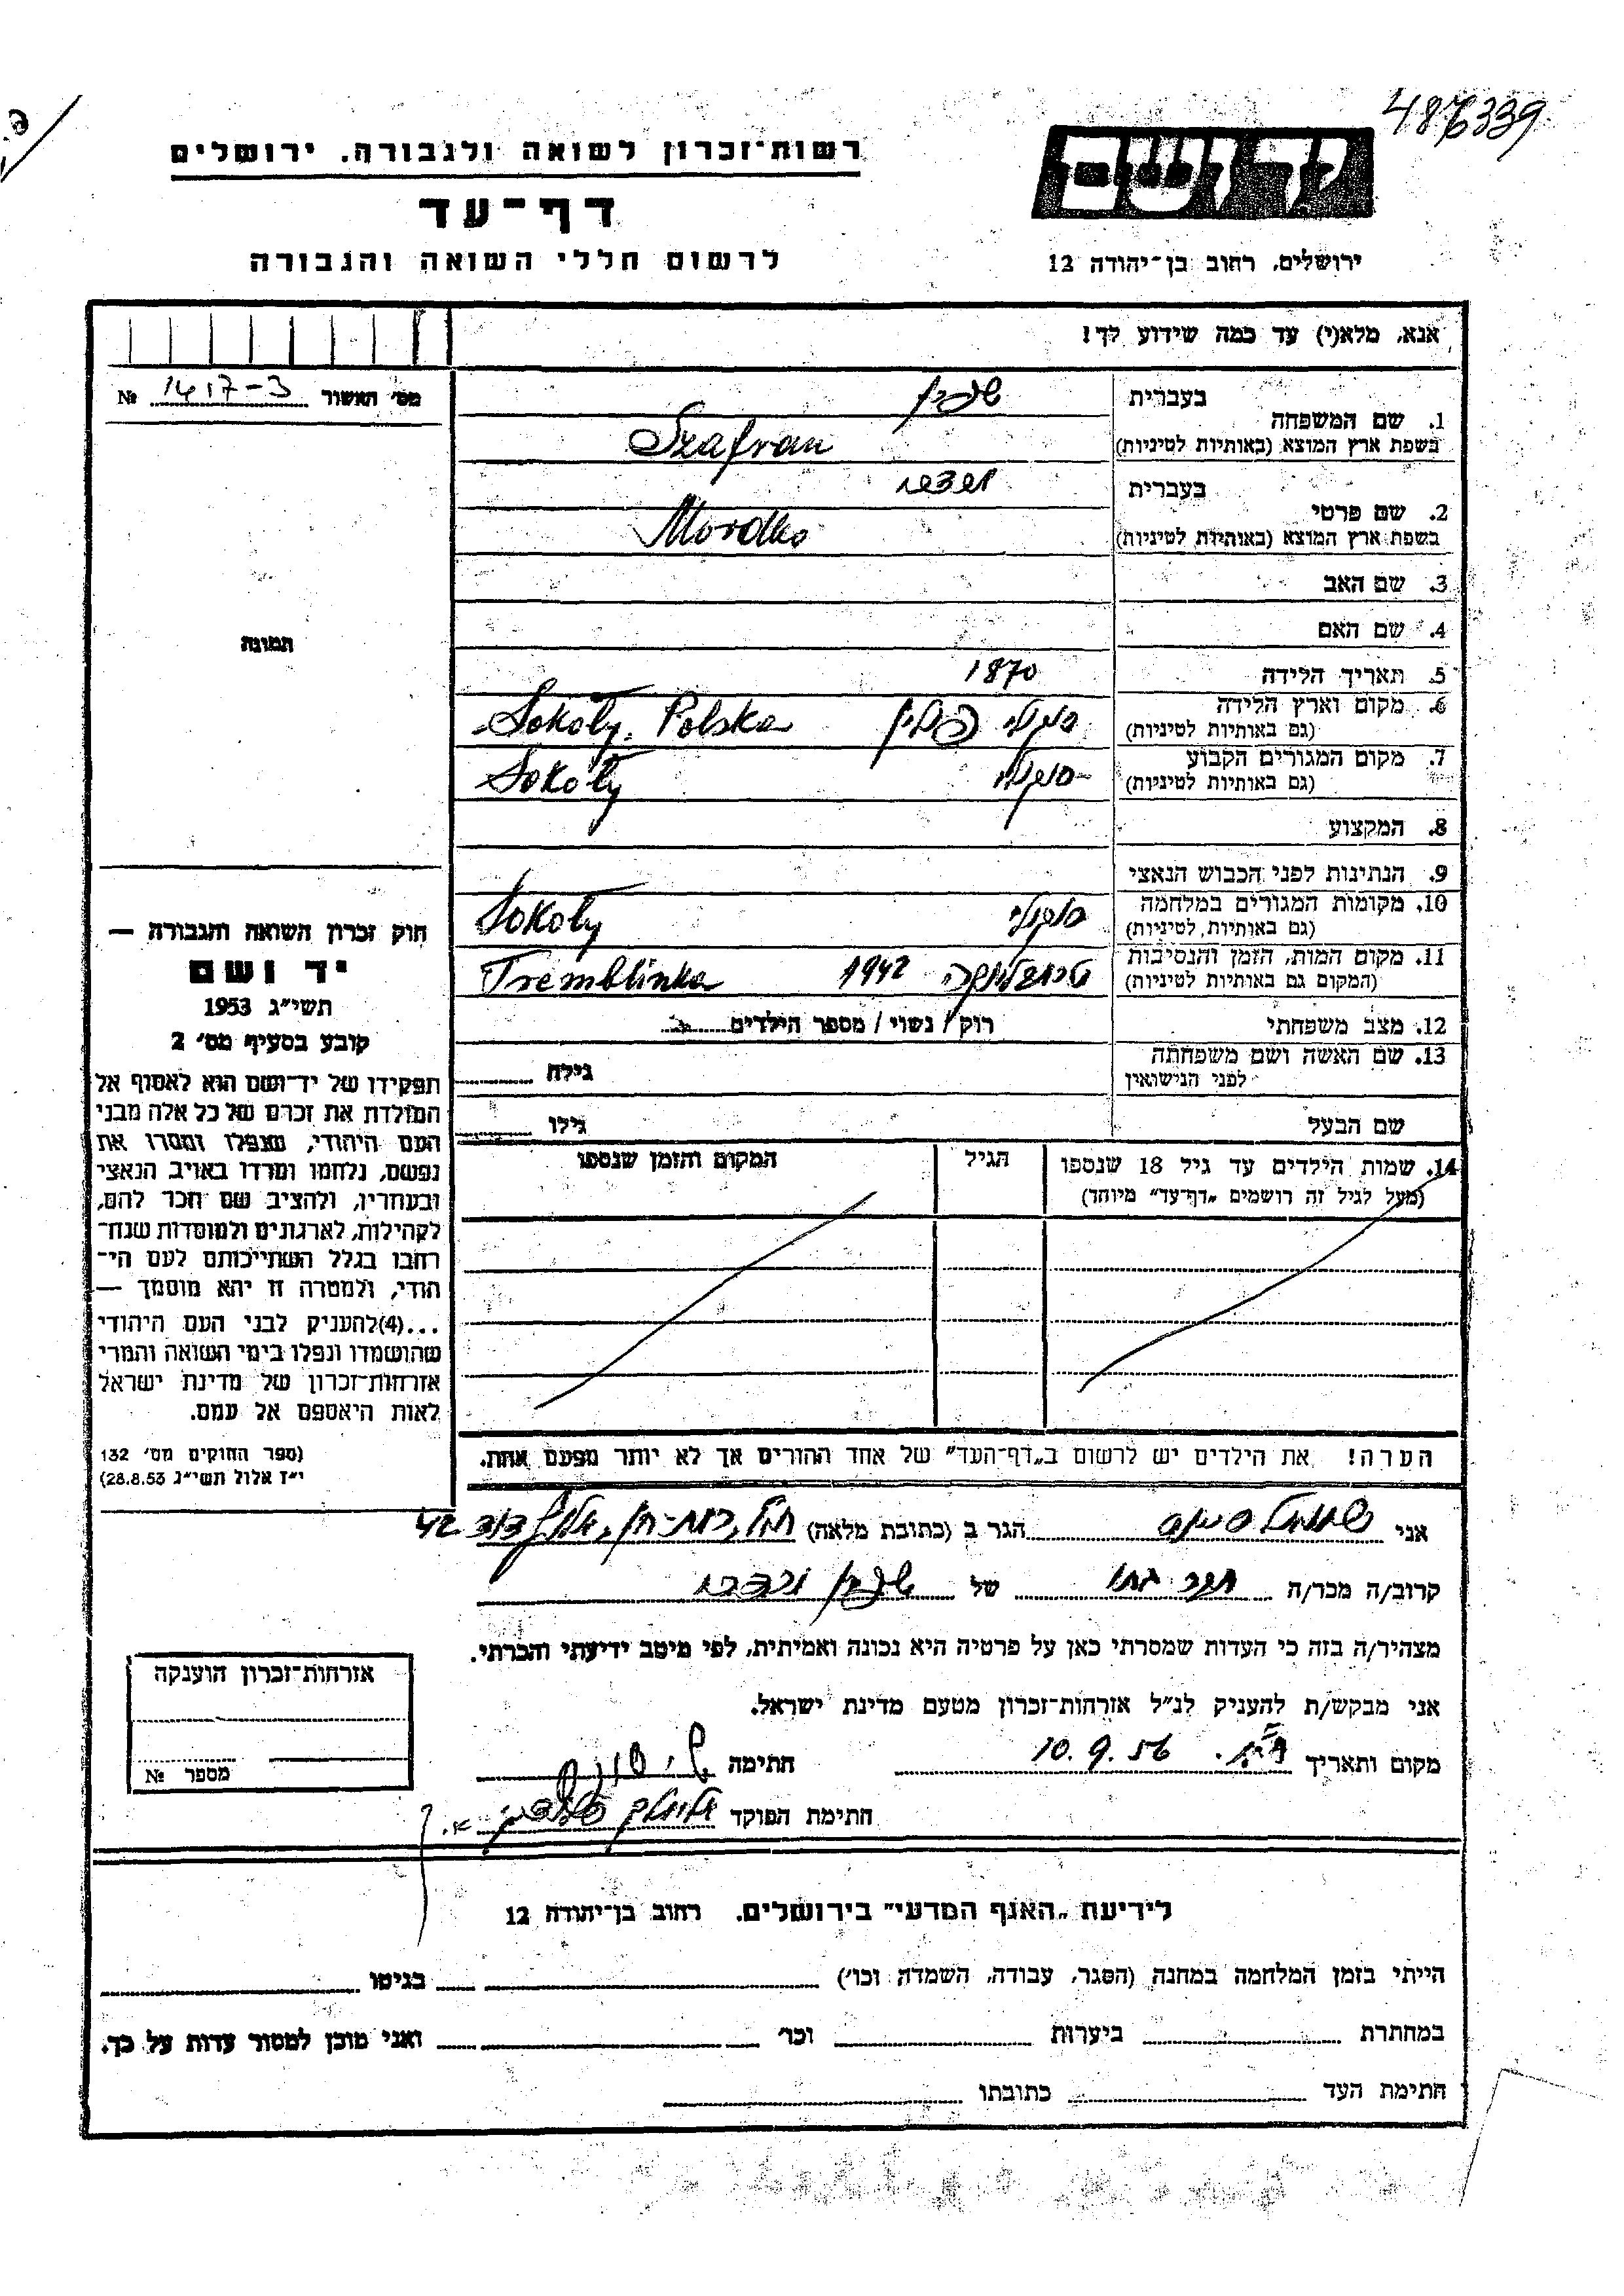 487339
רשות־זכרון לשואה ולגבורה. ירושלים
דף־עד
לרשום חללי השואה והגבורה
יד ושם
ירושלים, רחוב בן־יהודה 12
אנא, מלא(י) עד כמה שידוע לך!
מס׳ האשור 1417-3 №
תמונה
חוק זכרון השואה והגבורה —
יד ושם
תשי״ג 1953
קובע בסעיף מס׳ 2
תפקידו של יד־ושם הוא לאסוף אל
המולדת את זכרם של כל אלה מבני
העם היהודי, שנפלו ומסרו את
נפשם, נלחמו ומרדו באויב הנאצי
ובעוזריו, ולהציב שם וזכר להם,
לקהילות, לארגונים ולמוסדות שנח־
רבו בגלל השתייכותם לעם הי־
הודי, ולמטרה זו יהא מוסמך —
...(4)להעניק לבני העם היהודי
שהושמדו ונפלו בימי השואה והמרי
אזרחות־זכרון של מדינת ישראל
לאות היאספם אל עמם.
(ספר החוקים מס׳ 132
י״ז אלול תשי״ג 28.8.53)
בעברית שפרן
1. שם המשפחה
בשפת ארץ המוצא (באותיות לטיניות) Szafran
בעברית
2. שם פרטי
בשפת ארץ המוצא (באותיות לטיניות) Mordko
3. שם האב
4. שם האם
5. תאריך הלידה 1870
6. מקום וארץ הלידה
(גם באותיות לטיניות) סוקולי פולין Sokoły. Polska
7. מקום המגורים הקבוע
(גם באותיות לטיניות) סוקולי Sokoły
8. המקצוע
9. הנתינות לפני הכבוש הנאצי
10. מקומות המגורים במלחמה
(גם באותיות לטיניות) סוקולי Sokoły
11. מקום המות, הזמן והנסיבות
(המקום גם באותיות לטיניות) טרמבלינקה 1942 Tremblinka
12. מצב משפחתי רווק / נשוי / מספר הילדים
13. שם האשה ושם משפחתה גילה
לפני הנישואין
שם הבעל גילו
14. שמות הילדים עד גיל 18 שנספו הגיל המקום והזמן שנספו
(מעל לגיל זה רושמים „דף־עד״ מיוחד)
הערה! את הילדים יש לרשום ב„דף־העד״ של אחד ההורים אך לא יותר מפעם אחת.
אני שמואל הגר ב (כתובת מלאה) 42
קרוב/ה מכר/ה של שפרן מרדכי
מצהיר/ה בזה כי העדות שמסרתי כאן על פרטיה היא נכונה ואמיתית, לפי מיטב ידיעתי והכרתי.
אני מבקש/ת להעניק לנ״ל אזרחות־זכרון מטעם מדינת ישראל.
מקום ותאריך 10.9.56 חתימה
חתימת הפוקד
אזרחות־זכרון הוענקה
מספר №
לידיעת „האגף המדעי״ בירושלים. רחוב בן־יהודה 12
הייתי בזמן המלחמה במחנה (הסגר, עבודה, השמדה וכו׳) בגיטו
במחתרת ביערות וכו׳ ואני מוכן למסור עדות על כך.
חתימת העד כתובתו